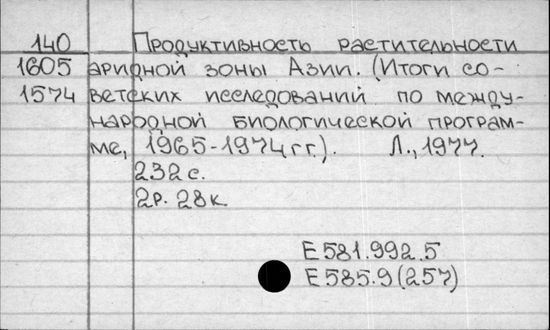 140 Продуктивность растительности
1605 аридной зоны Азии. (Итоги со-
1574 ветских исследований по между-
народной биологической програм-
ме, 1965-1974 гг.). Л., 1977.
232 с.
2р. 28к.
Е 581.992.5
Е 585.9 (257)